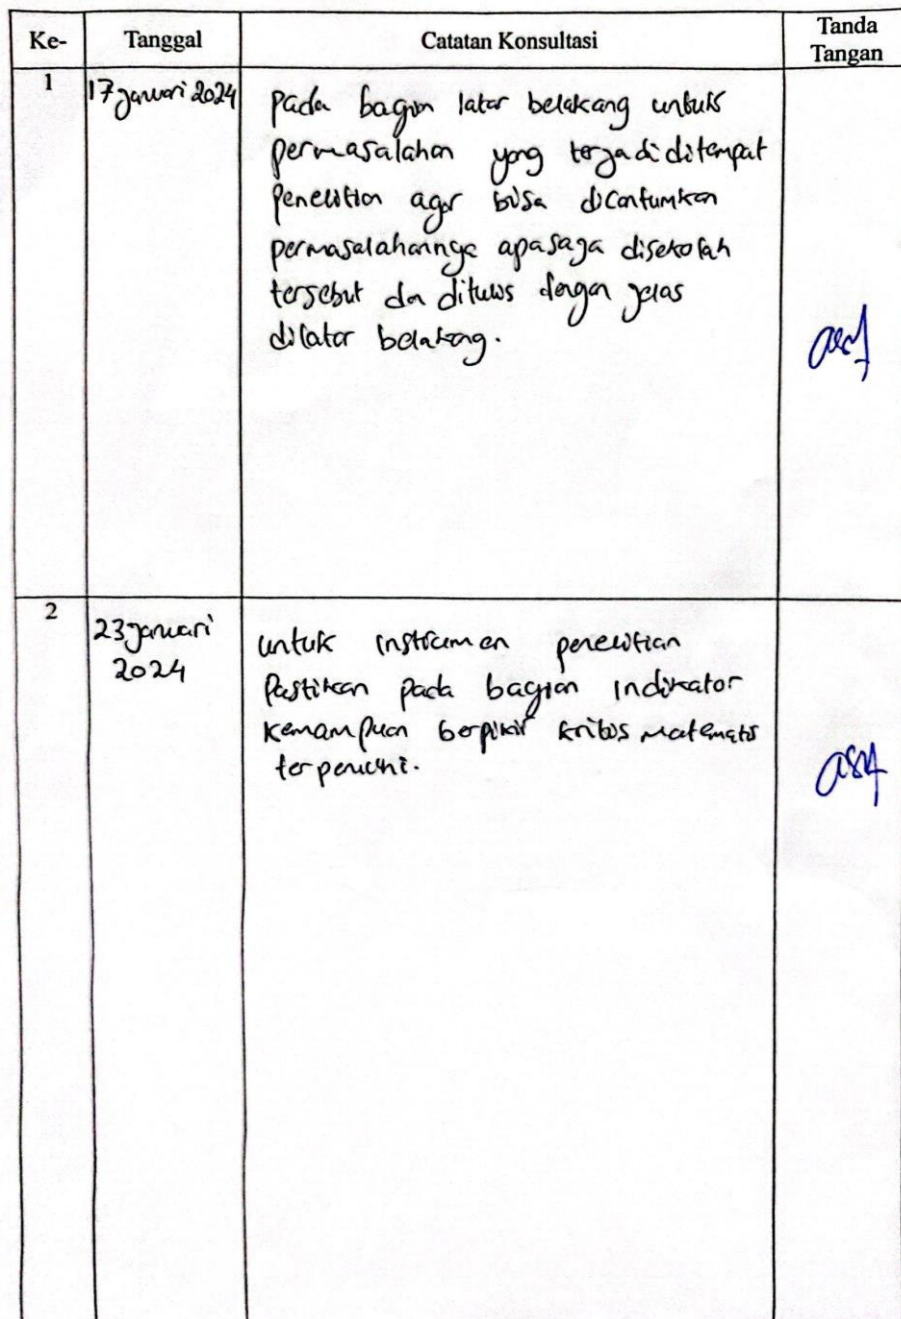 Ke- Tanggal Catatan Konsultasi Tanda Tangan
1 17 januari 2024
pada bagian latar belakang untuk
permasalahan yang terjadi ditempat
penelitian agar bisa dicantumkan
permasalahannya apasaja disekolah
tersebut dan ditulis dengan jelas
dilatar belakang.
2 23 januari
2024
untuk instrumen penelitian
Pastikan pada bagian indikator
kemampuan berpikir kritis matematis
terpenuhi.